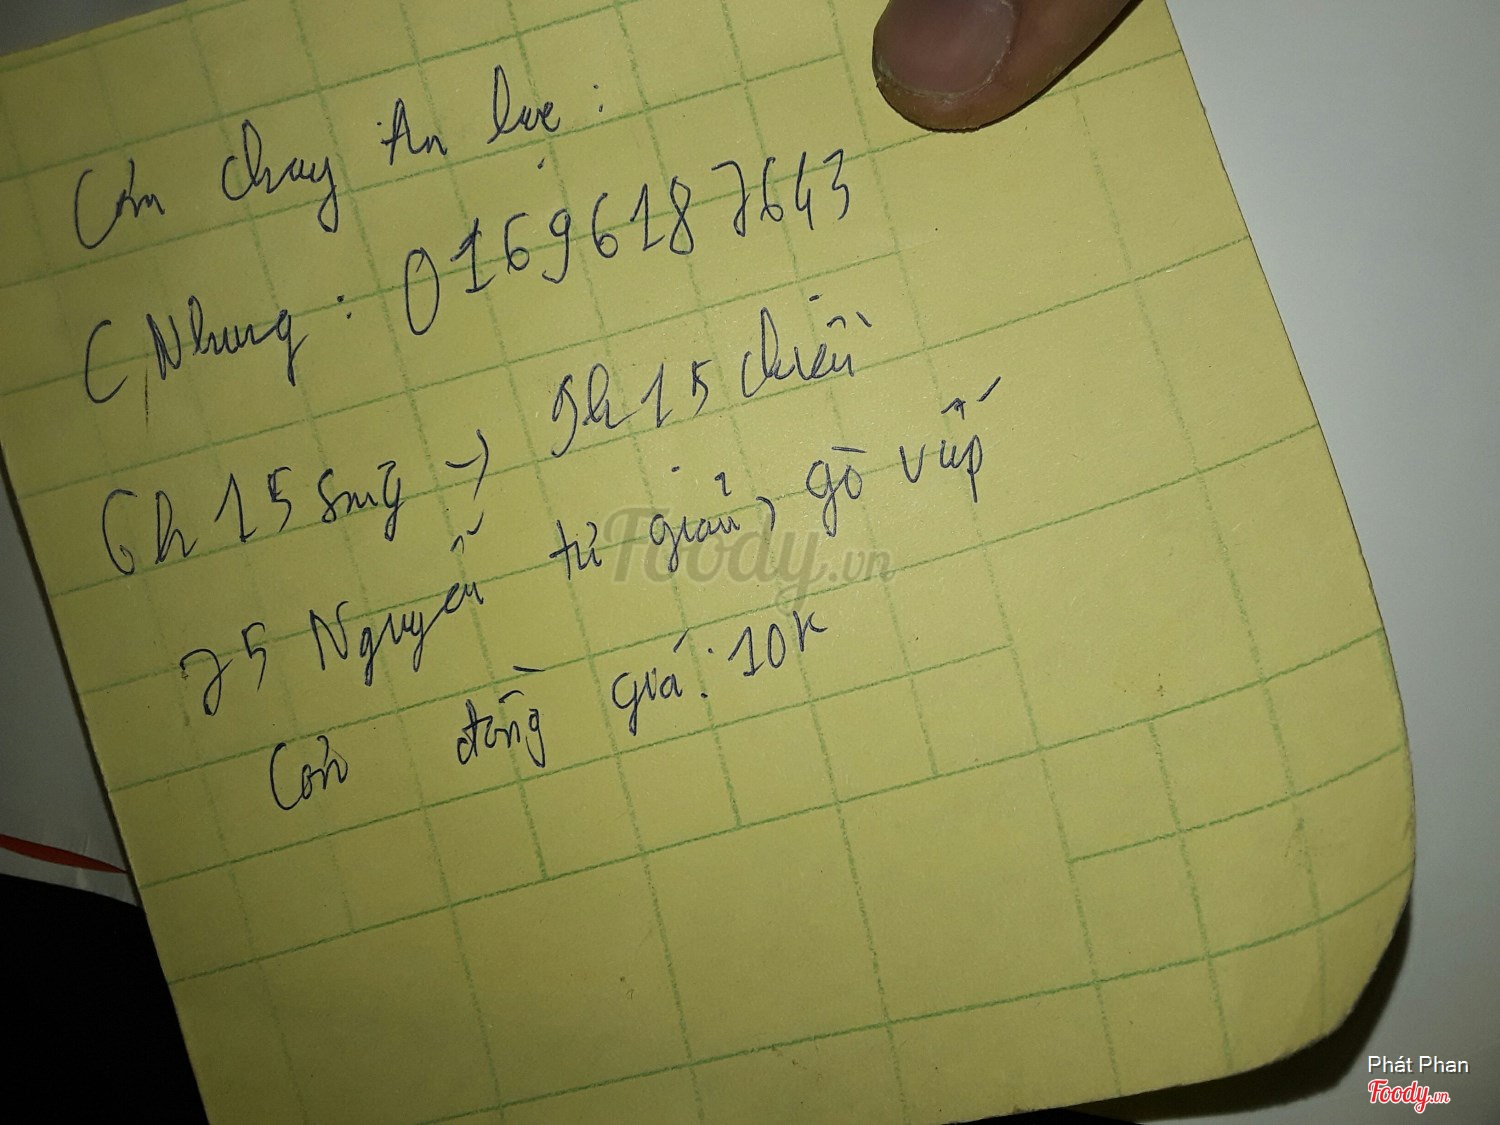 Cơm chay An lạc :
C, Nhung : 01696187643
6h15 sáng → 5h15 chiều
75 Nguyễn tư giản, gò vấp
Cơm đồng giá : 10k
Foody.vn
Phát Phan
Foody.vn